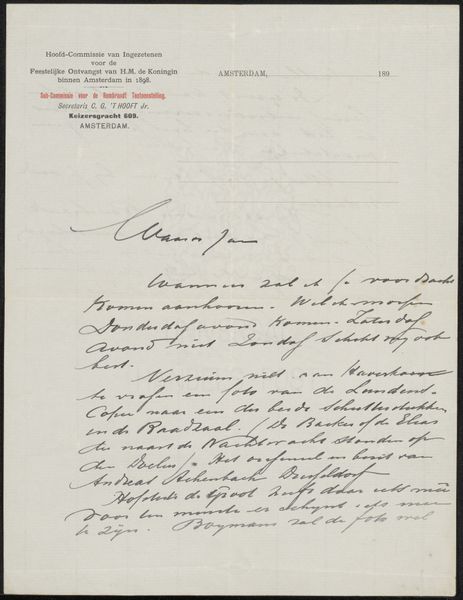 Hoofd-Commissie van Ingezetenen
voor de
Feestelijke Ontvangst van H.M. de Koningin
binnen Amsterdam in 1898.
Sub-Commissie voor de Rembrandt Tentoonstelling.
Secretaris C. G. 'T HOOFT Jr.
Keizersgracht 609.
AMSTERDAM.
AMSTERDAM, 189
Waarde Jan
Wanneer zal ik je voordracht
komen aanhooren. Wil ik morgen
Donderdag avond komen. Zaterdag
avond niet Zondag schikt mij ook
best.
Verzuim niet aan Haverkorn
te vragen een foto van de Lundens
Copie naar een der beide Schuttersstukken
in de Raadzaal. (De Backer of de Elias
die naast de Nachtwacht stonden op
den Doelen). Het origineel in bezit van
Andreas Achenbach Dusseldorf
Hofstede de Groot heeft daar iets
voor hem schijnt iets meer
te zijn. Boymans zal de foto wel